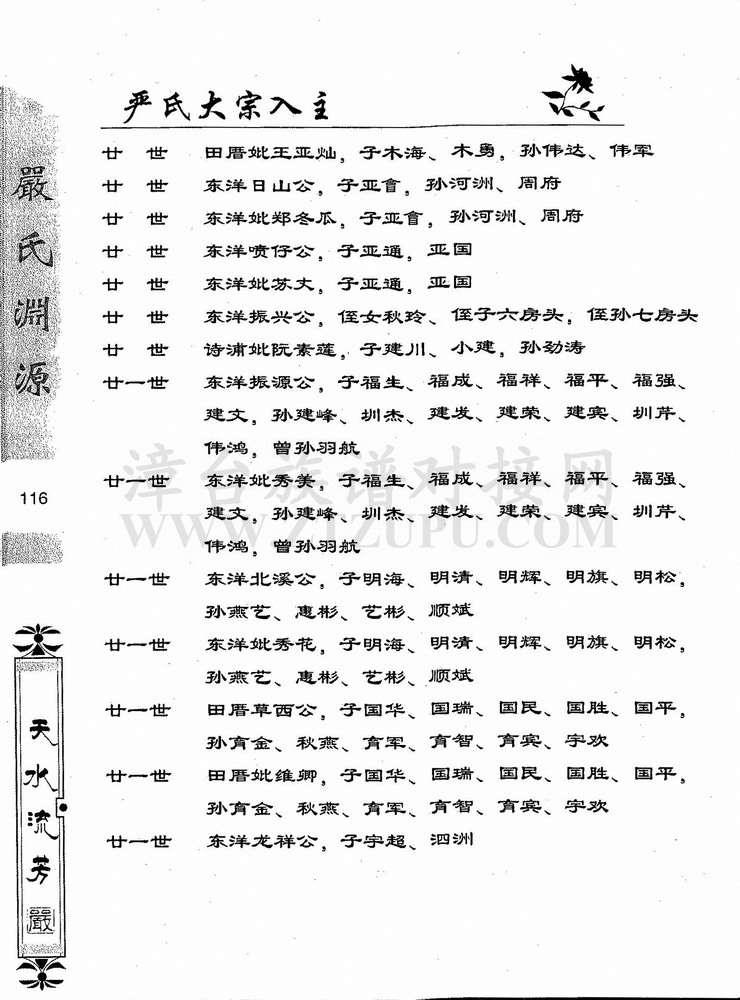 严氏大宗入主
廿 世 田厝妣王亚灿，子木海、木勇，孙伟达、伟军
廿 世 东洋日山公，子亚會，孙河洲、周府
廿 世 东洋妣郑冬瓜，子亚會，孙河洲、周府
廿 世 东洋喷仔公，子亚通，亚国
廿 世 东洋妣苏丈，子亚通，亚国
廿 世 东洋振兴公，侄女秋玲、侄子六房头，侄孙七房头
廿 世 诗浦妣阮素莲，子建川、小建，孙劲涛
廿一世 东洋振源公，子福生、福成、福祥、福平、福强、
建文，孙建峰、圳杰、建发、建荣、建宾、圳芹、
伟鸿，曾孙羽航
廿一世 东洋妣秀美，子福生、福成、福祥、福平、福强、
建文，孙建峰、圳杰、建发、建荣、建宾、圳芹、
伟鸿，曾孙羽航
廿一世 东洋北溪公，子明海、明清、明辉、明旗、明松，
孙燕艺、惠彬、艺彬、顺斌
廿一世 东洋妣秀花，子明海、明清、明辉、明旗、明松，
孙燕艺、惠彬、艺彬、顺斌
廿一世 田厝草西公，子国华、国瑞、国民、国胜、国平，
孙育金、秋燕、育军、育智、育宾、宇欢
廿一世 田厝妣维卿，子国华、国瑞、国民、国胜、国平，
孙育金、秋燕、育军、育智、育宾、宇欢
廿一世 东洋龙祥公，子宇超、泗洲
嚴氏淵源
116
天水流芳
嚴
漳台族谱对接网
WWW.ZTZUPU.COM